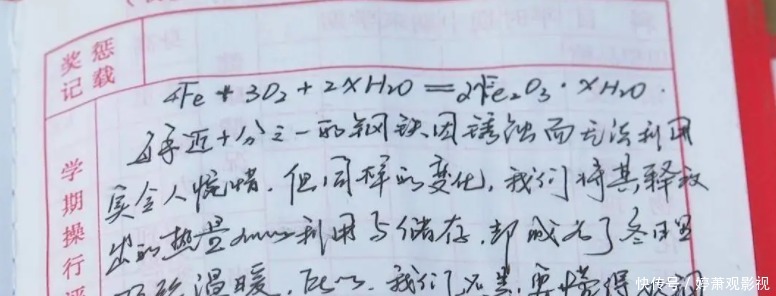 奖惩
记载
4Fe+3O₂+2XH₂O=2Fe₂O₃·XH₂O.
每年近十分之一的钢铁因锈蚀而无法利用
实令人惋惜.但同样的变化,我们将其释放
出的热量加以利用与储存,却成为了冬日里
温暖.所以,我们要懂得
学期操行评
快传号/婷萧观影视